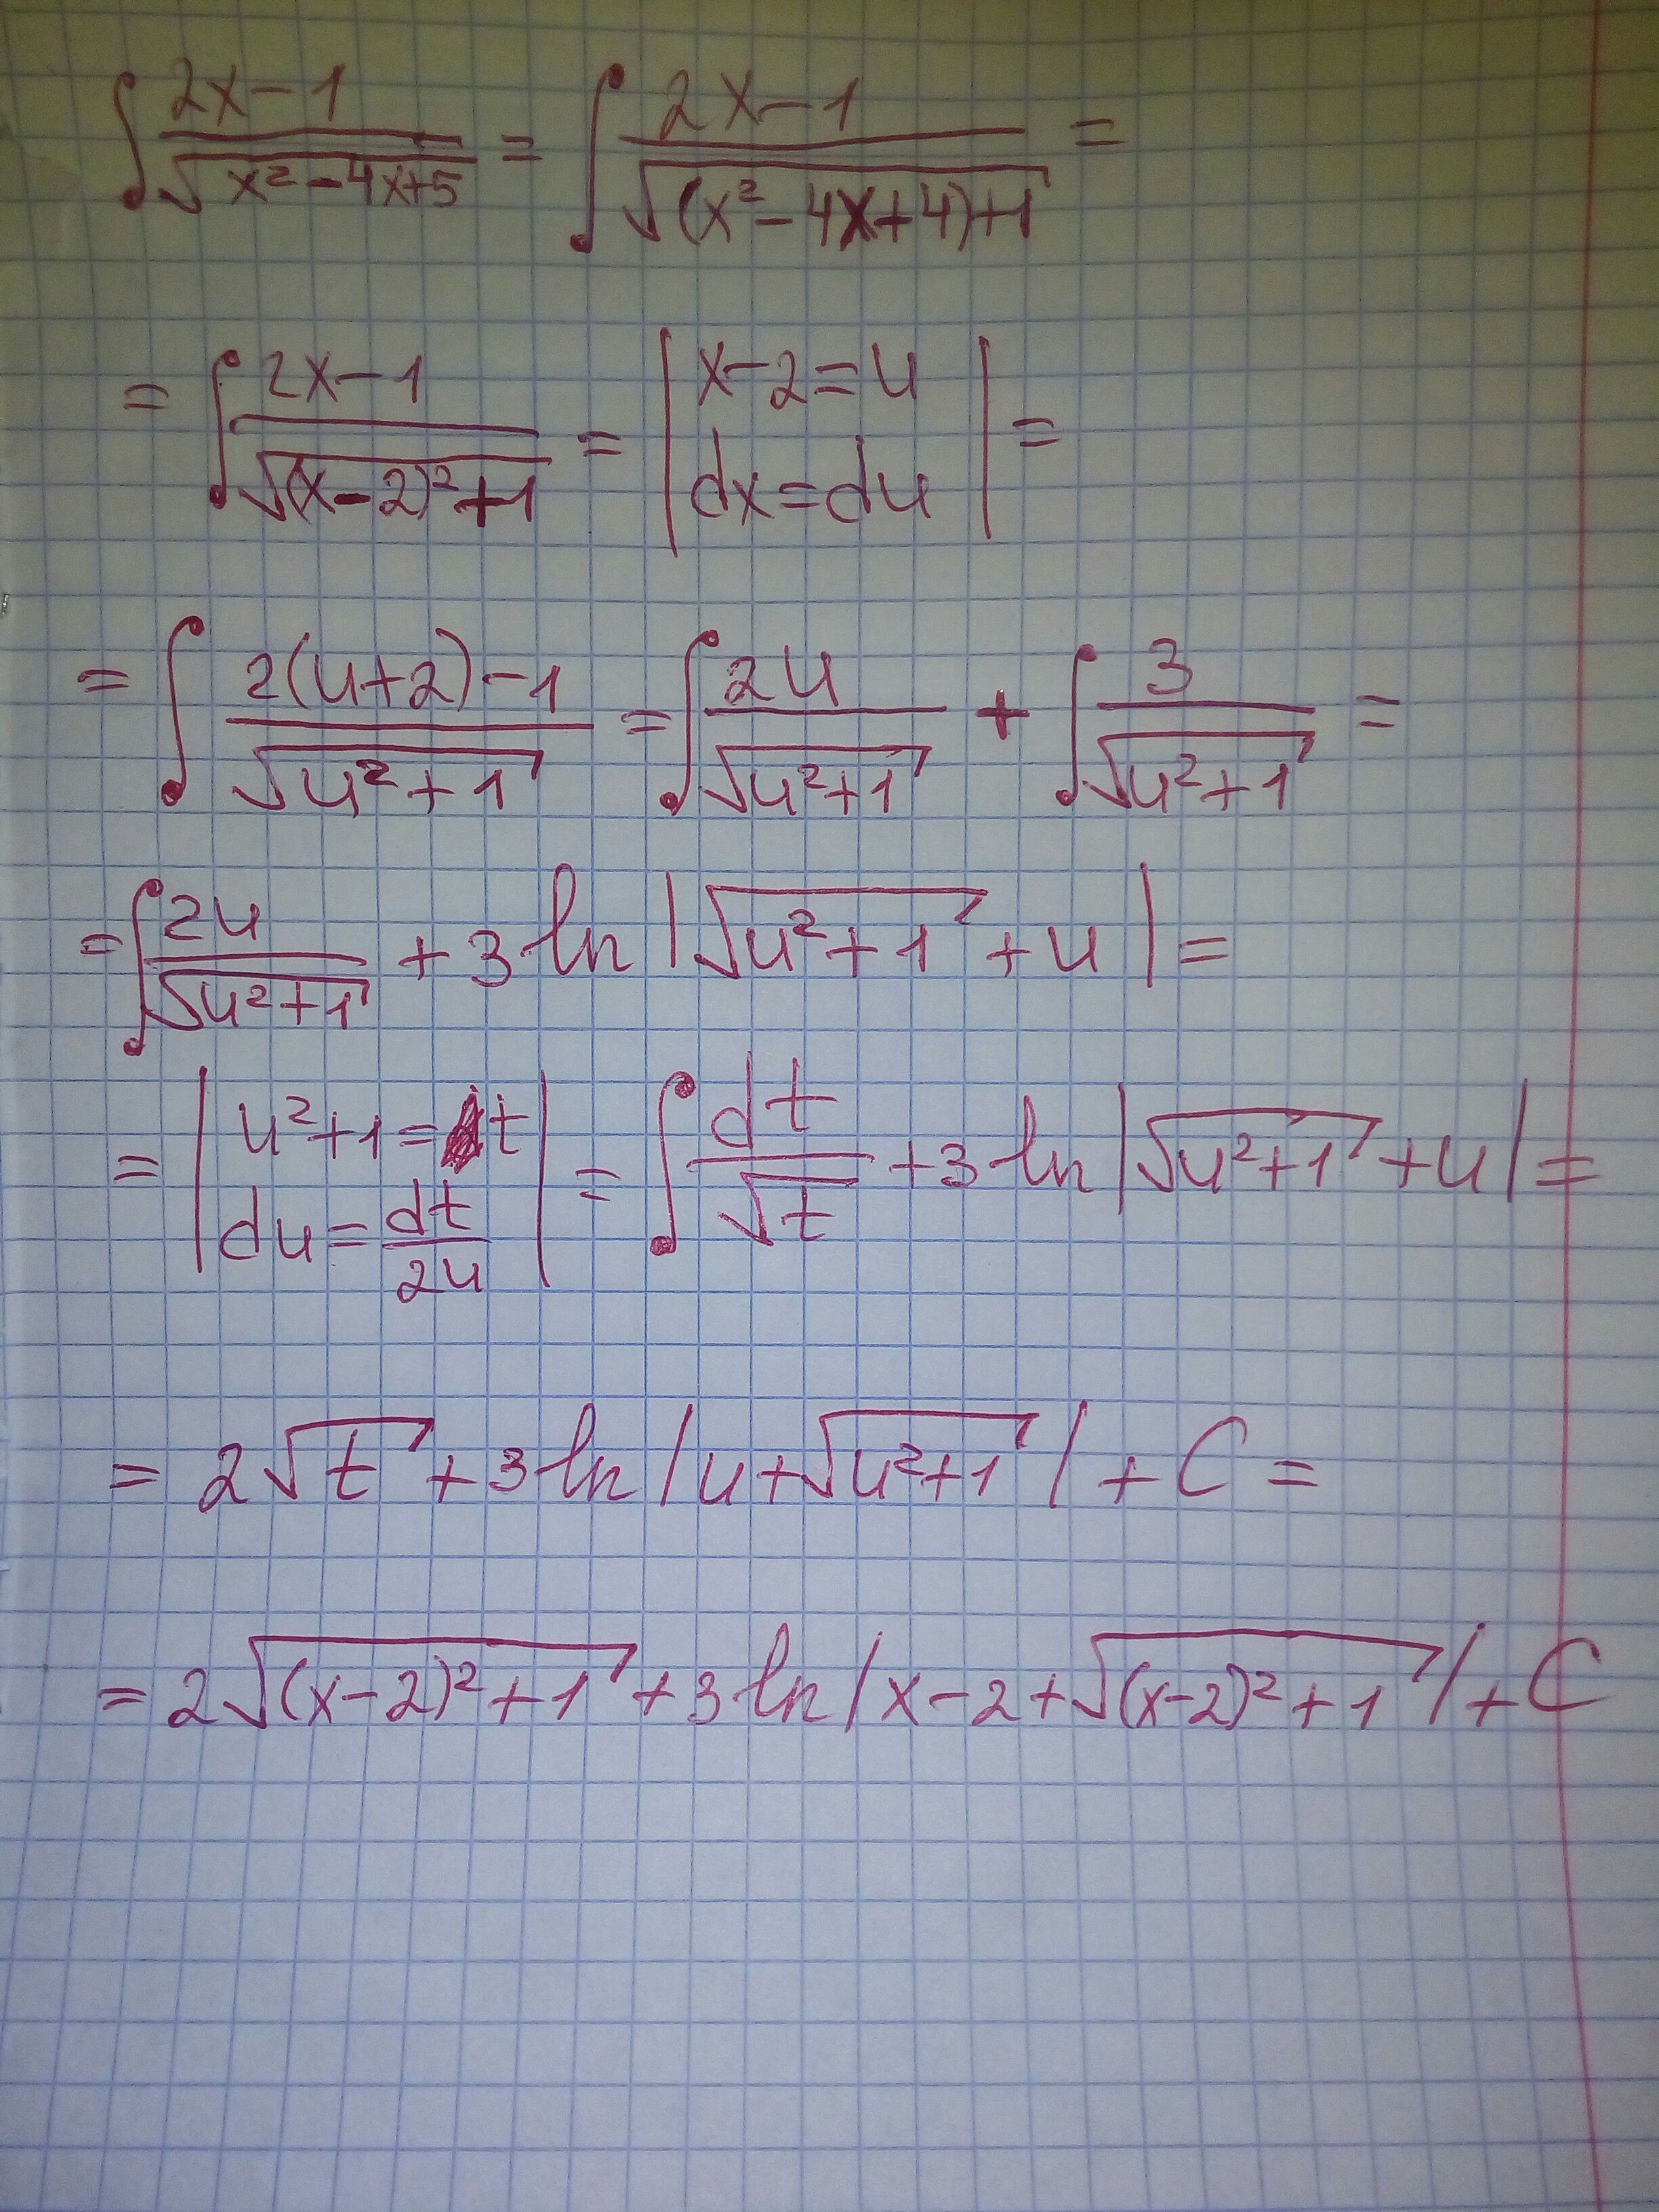 ∫ (2x-1)/√(x²-4x+5) = ∫ (2x-1)/√((x²-4x+4)+1) =
= ∫ (2x-1)/√((x-2)²+1) = | x-2=u dx=du | =
= ∫ (2(u+2)-1)/√(u²+1) = ∫ 2u/√(u²+1) + ∫ 3/√(u²+1) =
= ∫ 2u/√(u²+1) + 3 ln |√(u²+1) + u| =
= | u²+1=t du=dt/2u | = ∫ dt/√t + 3 ln |√(u²+1) + u| =
= 2√t + 3 ln |u+√(u²+1)| + C =
= 2√((x-2)²+1) + 3 ln |x-2+√((x-2)²+1)| + C